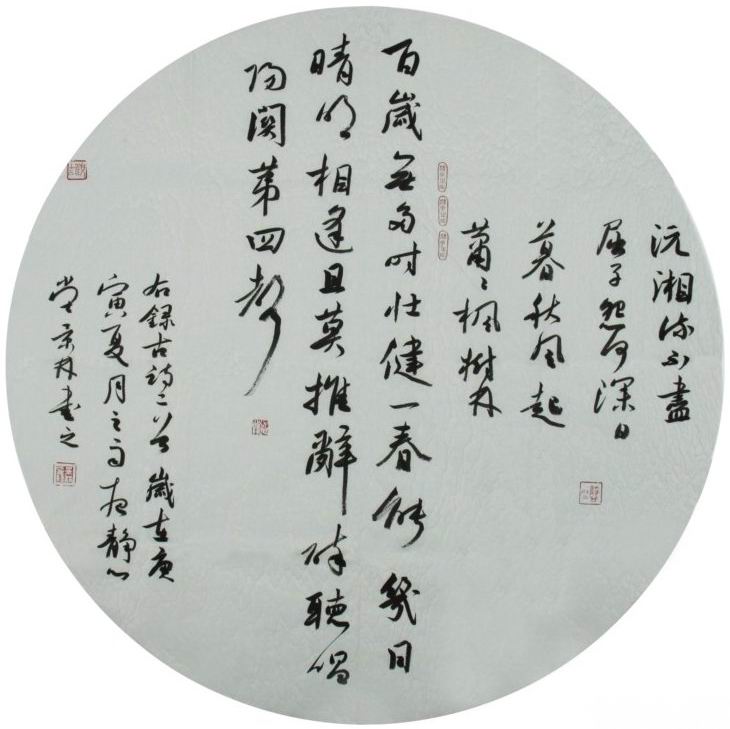 沅湘流不盡
屈子怨何深日
暮秋風起
蕭〻楓樹林
百歲無多時壯健一春能幾日
晴明相逢且莫推辭醉聽唱
陽關第四聲
右錄古詩二首歲在庚
寅夏月之雨夜靜心
堂林書之